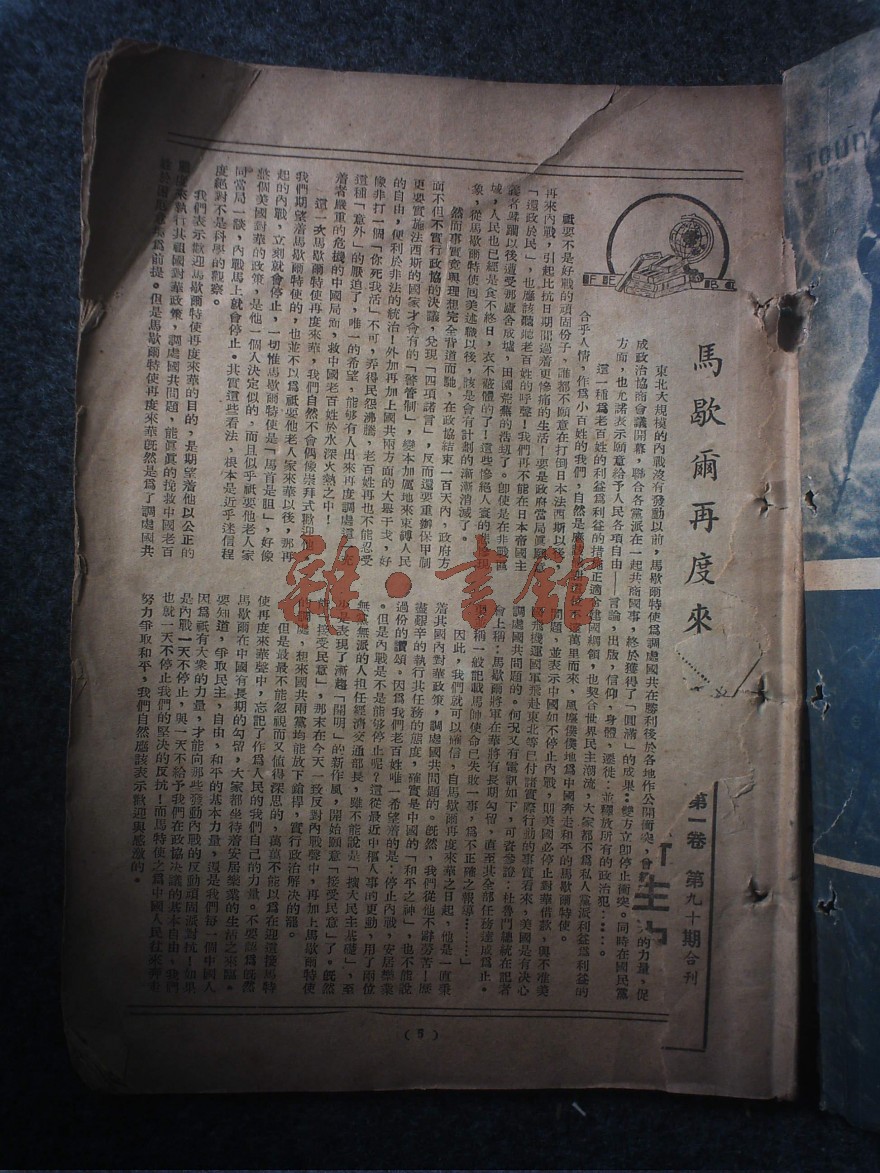 馬歇爾再度來……
東北大規模的內戰沒有發動以前，馬歇爾特使為調處國共在勝利後於各地作公開衝突，會 的力量，促
成政治協商會議開幕，聯合各黨派在一起共商國事，終於獲得了「圓滿」的成果：雙方立卽停止衝突。同時在國民黨
方面，也允諾表示願意給予人民各項自由——言論，出版，信仰，身體，遷徙；並釋放所有的政治犯……。
這一種為老百姓的利益為利益的措施正適合建國綱領，也契合世界民主潮流，大家都不為私人黨派利益為利益的
合乎人情，作為小百姓的我們，自然是應該感 這位不辭萬里而來，風塵僕僕地為中國奔走和平的馬歇爾特使。
祗要不是好戰的頑固份子，誰都不願意在打倒日本法西斯以後
再來內戰，引起比抗日期間過着更慘痛的生活！要是政府當局眞願意
「還政於民」，也應該聽聽老百姓的呼聲！我們再不能在日本帝國主
義者蹂躪以後遭受那廬舍成墟，田園荒蕪的浩刧了。卽使是在非戰區
域，人民也已經是食不終日，衣不蔽體的了！這些慘絕人寰的悲慘現
象，從馬歇爾特使囘美述職以後，該是會有計劃的漸漸消滅了。
然而事實竟與理想完全背道而馳，在政協結束一百天內，政府方
面不但不實行政協的決議，兌現「四項諾言」，反而還要重辦保甲制
更要實施法西斯的國家才會有的「警管制」，變本加厲地來束縛人民
的自由，便利於非法的統治！外加再加上國共兩方面的大舉干戈，好
像非打一個「你死我活」不可，弄得民怨沸騰，老百姓再也不能忍受
這種「意外」的壓迫了，唯一的希望，能够有人出來再度調處這充
着嚴重的危機的中國局面，救中國老百姓於水深火熱之中！
這一次馬歇爾特使再度來華，我們自然不會偶像崇拜式歡迎他。
我們期望着馬歇爾特使的，也並不以為祗要他老人家來華以後，那再
起的內戰，立刻就會停止，一切惟馬歇爾特使是「馬首是瞻」，好像
整個美國對華的政策，是他一個人決定似的，而且似乎祗要他老人家
同當局一談，內戰馬上就會停止。其實這些看法，根本是近乎迷信程
度絕對不是科學的觀察。
我們表示歡迎馬歇爾特使再度來華的目的，是期望着他以公正的
態度來執行其祖國對華政策，調處國共問題，能眞眞的挽救中國老百
姓於 為前提。但是馬歇爾特使再度來華旣然是為了調處國共
問題，並表示中國如不停止內戰，則美國必停止對華借款，與不准美
國飛機運國軍飛赴東北等已付諸實際行動的事實看來，美國是有決心
調處國共問題的。何況又有電訊如下，可資參證：杜魯門總統在記者
會上稱：馬歇爾將軍在華將有長期勾留，直至其全部任務達成為止。
稱一般記載馬帥使命已失敗一事，為不正確之報導………」
因此，我們就可以確信，自馬歇爾再度來華之日起，他是一直秉
着其國內對華政策，調處國共問題的。旣然，我們從他不辭勞苦！歷
盡艱辛的執行其任務的態度，確實是中國的「和平之神」，也不能說
過份的讚頌。因為我們老百姓唯一希望着的是：停止內戰，安居樂業
。但是內戰是不是能够停止呢？這從最近中樞人事的更動，用了兩位
無黨無派的人担任經濟交通部長，雖不能說是「擴大民主基礎」，至
少是表現了漸趨「開明」的新作風，開始願意「接受民意」了。旣然
能「接受民意」，那末在今天一致反對內戰聲中，再加上馬歇爾特使
的調處，想來國共兩黨均能放下鎗捍，實行政治解決的罷。
但是最最不能忽視而又值得深思的，萬萬不能以為在迎迓接馬特
使再度來華聲中，忘記了作為人民的我們自己的力量。不要認為旣然
馬歇爾在中國有長期的勾留，大家都坐待着安居樂業的生活之來臨。
要知道，爭取民主，自由，和平的基本力量，還是我們每一個中國人
因為祇有大衆的力量，才能向那些發動內戰的反動頑固派對抗！如果
是內戰一天不停止，與一天不給予我們在政協決議的基本自由，我們
也就一天不停止我們的堅決的反抗！而馬特使之為中國人民往來奔走
努力爭取和平，我們自然應該表示歡迎與感激的。
第一卷 第九十期合刊
（5）
雜·書館